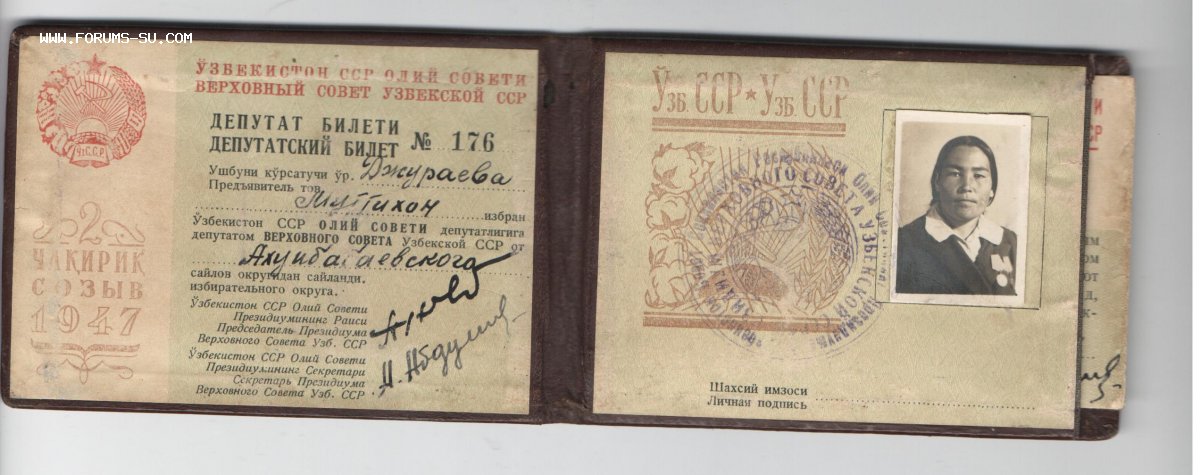 www.FORUMS-SU.COM
ЎЗБЕКИСТОН ССР ОЛИЙ СОВЕТИ
ВЕРХОВНЫЙ СОВЕТ УЗБЕКСКОЙ ССР
ДЕПУТАТ БИЛЕТИ
ДЕПУТАТСКИЙ БИЛЕТ № 176
Ушбуни кўрсатучи ўр. Джураева
Предъявитель тов.
избран
Ўзбекистон ССР ОЛИЙ СОВЕТИ депутатлигига
депутатом ВЕРХОВНОГО СОВЕТА Узбекской ССР от
Ахунбабаевского
сайлов округидан сайланди.
избирательного округа.
Ўзбекистон ССР Олий Совети
Президиумининг Раиси
Председатель Президиума
Верховного Совета Узб. ССР
Ўзбекистон ССР Олий Совети
Президиумининг Секретари
Секретарь Президиума
Верховного Совета Узб. ССР
Уз.С.С.Р.
2
ЧАҚИРИҚ
СОЗЫВ
1947
Ўзб. ССР ★ Узб. ССР
Шахсий имзоси
Личная подпись